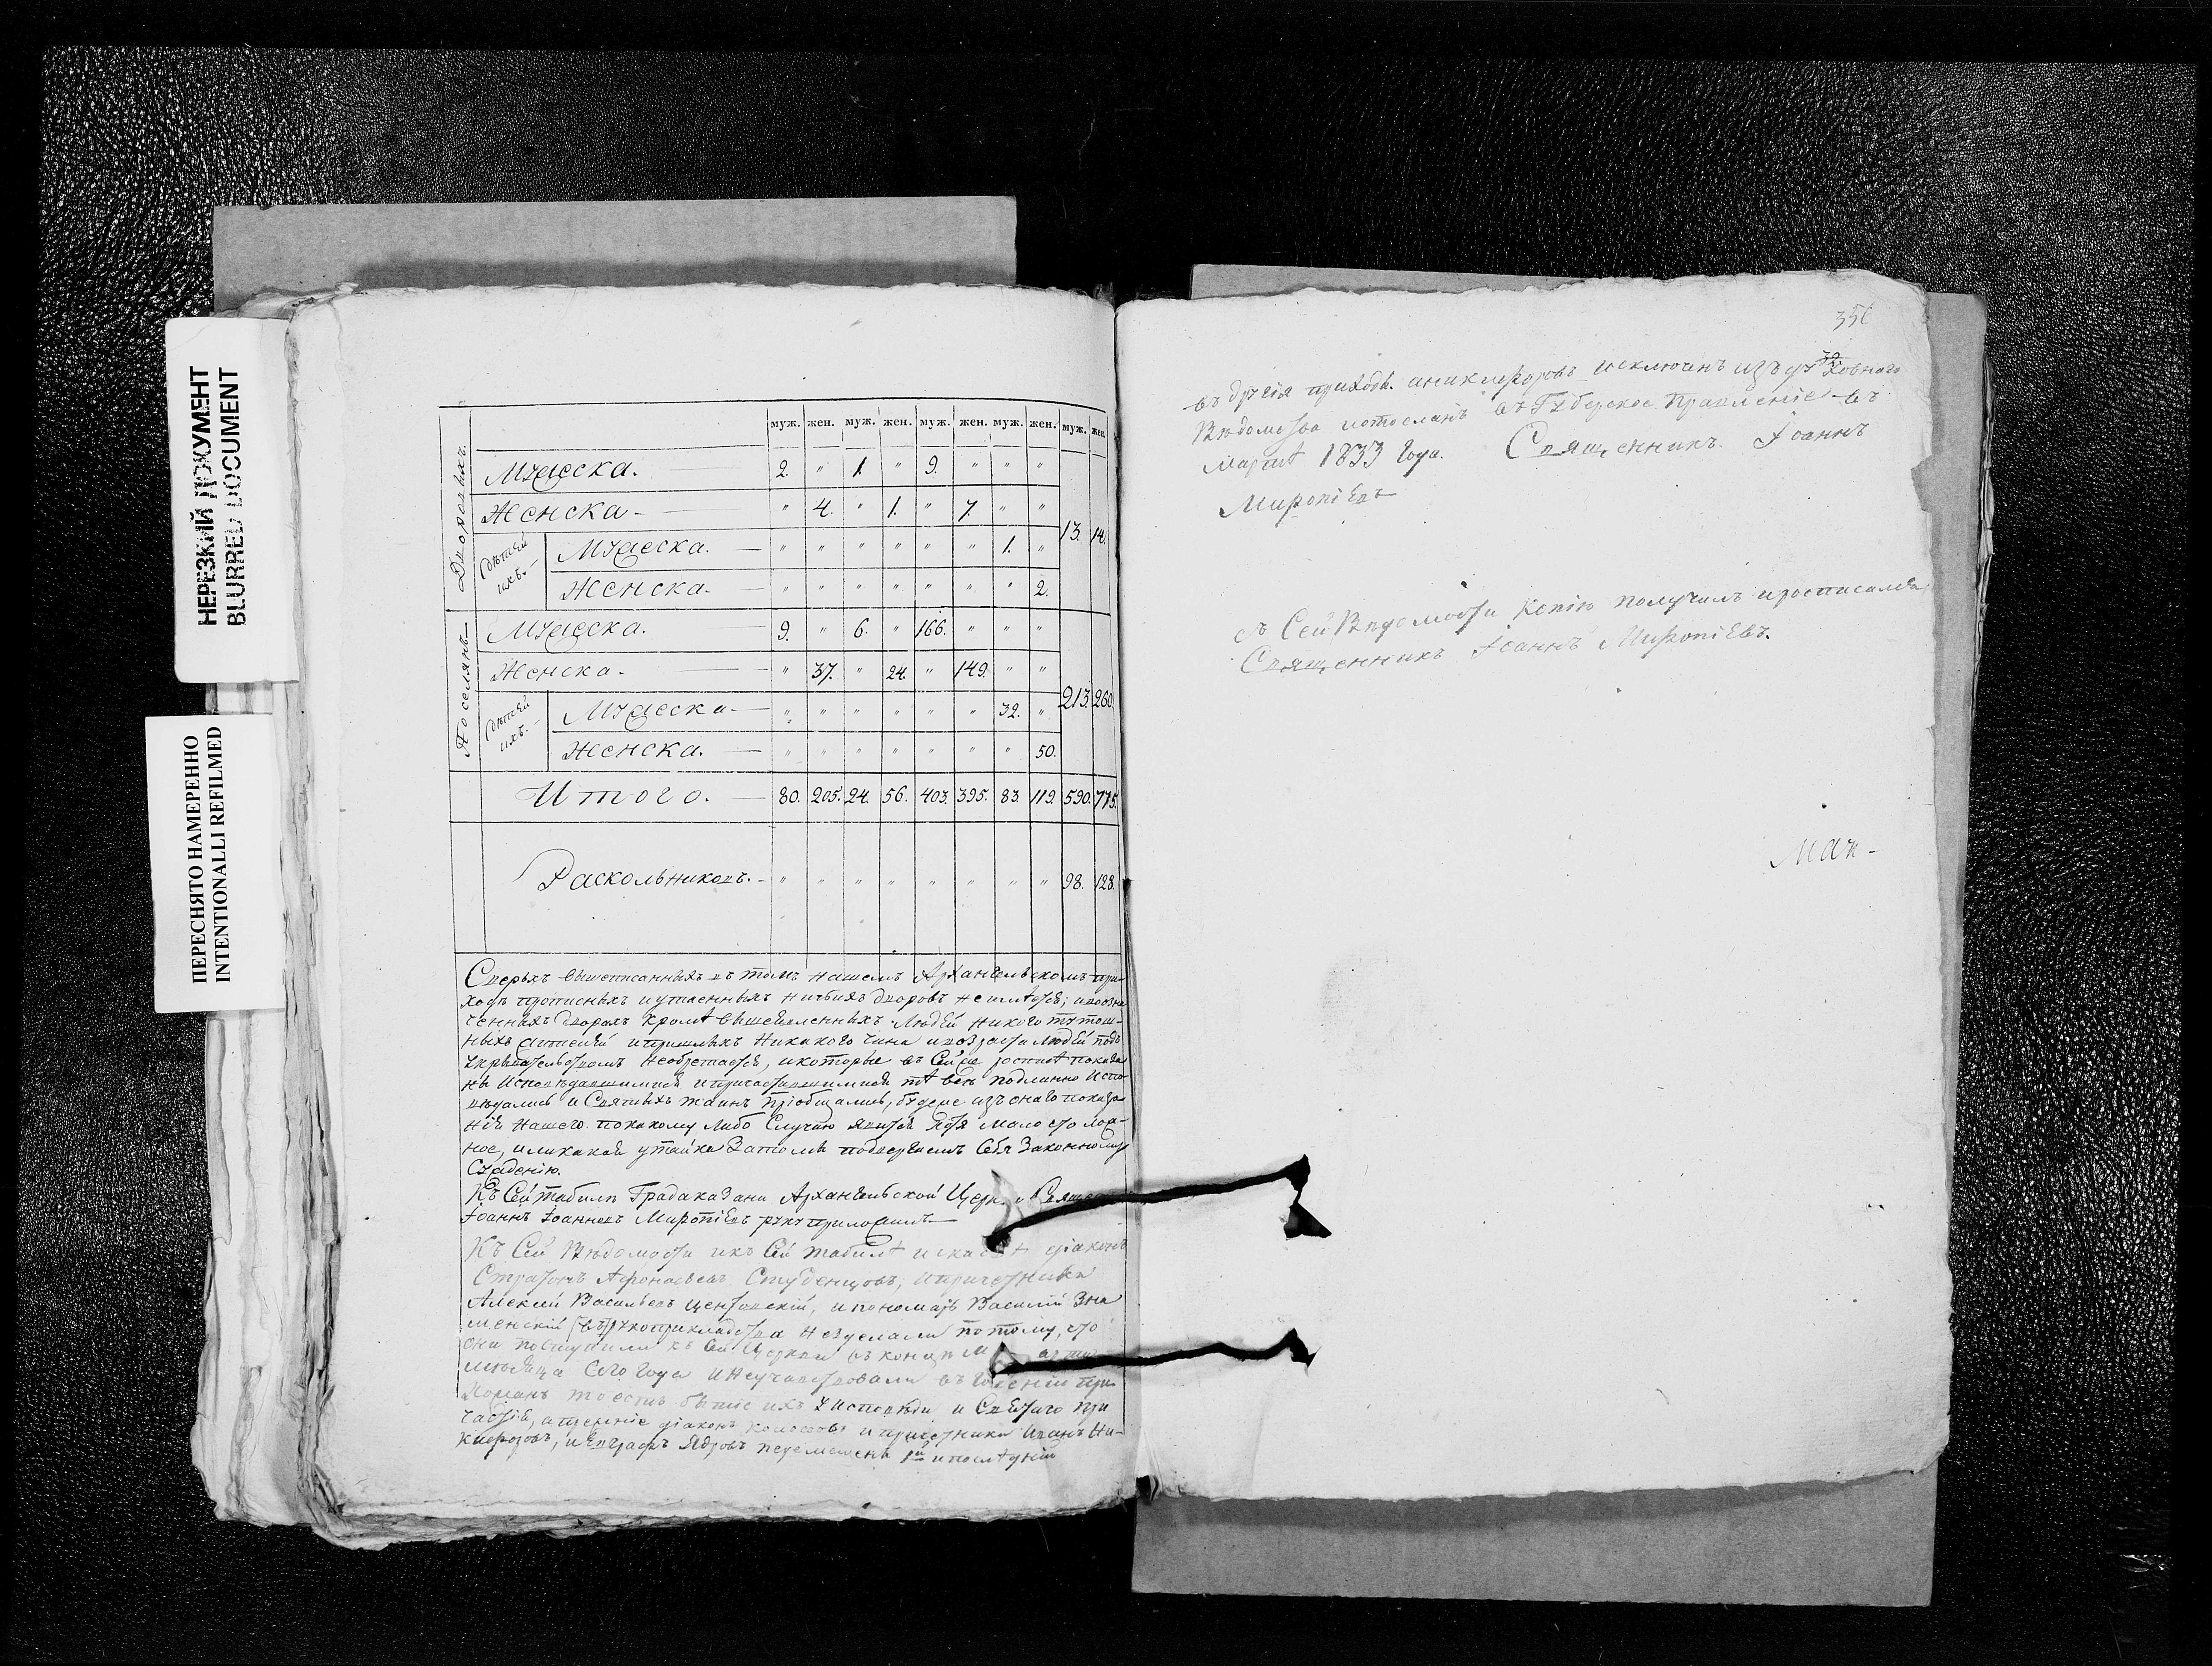 НЕРЕЗКИЙ ДОКУМЕНТ
BLURRED DOCUMENT
ПЕРЕСНЯТО НАМЕРЕННО
INTENTIONALLI REFILMED
муж. жен. муж. жен. муж. жен. муж. жен. муж. жен.
Дворовыхъ.
Мужеска. 2. " 1. " 9. " " "
Женска " 4. " 1. " 7. " "
13. 14.
дѣтей ихъ.
Мужеска. " " " " " " 1. "
Женска. " " " " " " " 2.
Поселянъ
Мужеска. 9. " 6. " 166. " " "
Женска. " 37. " 24. " 149. " "
213. 260.
дѣтей ихъ.
Мужеска " " " " " " 32. "
Женска. " " " " " " " 50.
Итого. 80. 205. 24. 56. 403. 395. 83. 119. 590. 775.
Раскольниковъ. " " " " " " " " 98. 128.
Сверьхъ вышеписанныхъ въ томъ нашемъ Архангельскомъ при-
ходѣ прописныхъ и утаенныхъ ничьихъ дворовъ не имѣется; и въ озна
ченныхъ дворахъ кромѣ вышеявленныхъ людей никого тутош-
ныхъ жителей и пришлыхъ никакого чина и возраста людей подъ
укрывательствомъ необретается, и которые въ сей же росписѣ показа
ны исповѣдавшимися и причастившимися тѣ все подлинно испо-
вѣдались и Святыхъ таинъ приобщались, буде же изъ онаго показа
нія нашего по какому либо случаю явится хотя мало что лож-
ное, или какая утайка за то мы подвергаемъ себя законному
суждению.
Къ сей табели Града Казани Архангельской Церкви Священникъ
Іоаннъ Іоанновъ Миропіевъ руку приложилъ.
Къ сей Вѣдомости и къ сей табелѣ и діаконъ
Афонасьевъ Студенцовъ, и причетники
Алексѣй Васильевъ и пономарь Василій Зна
менскій рукоприкладства не зделали потому, что
они поступили къ сей Церкви въ концѣ
мѣсяца сего года и не участвовали въ при-
хожанъ то есть бытіе ихъ у исповѣди и Святаго при
частія, а прежніе діаконъ и причетники Иванъ Ни-
кифоровъ, и Евграфъ Ядровъ перемещены 1й и послѣдній
35
въ другія приходы. а Никифоровъ исключенъ изъ духовнаго
Вѣдомства и отосланъ въ Губерское Правленіе въ
Мартѣ 1833 года. Священникъ Іоаннъ
Миропіевъ
съ сей Вѣдомости копію получилъ и росписался
Священникъ Іоаннъ Миропіевъ.